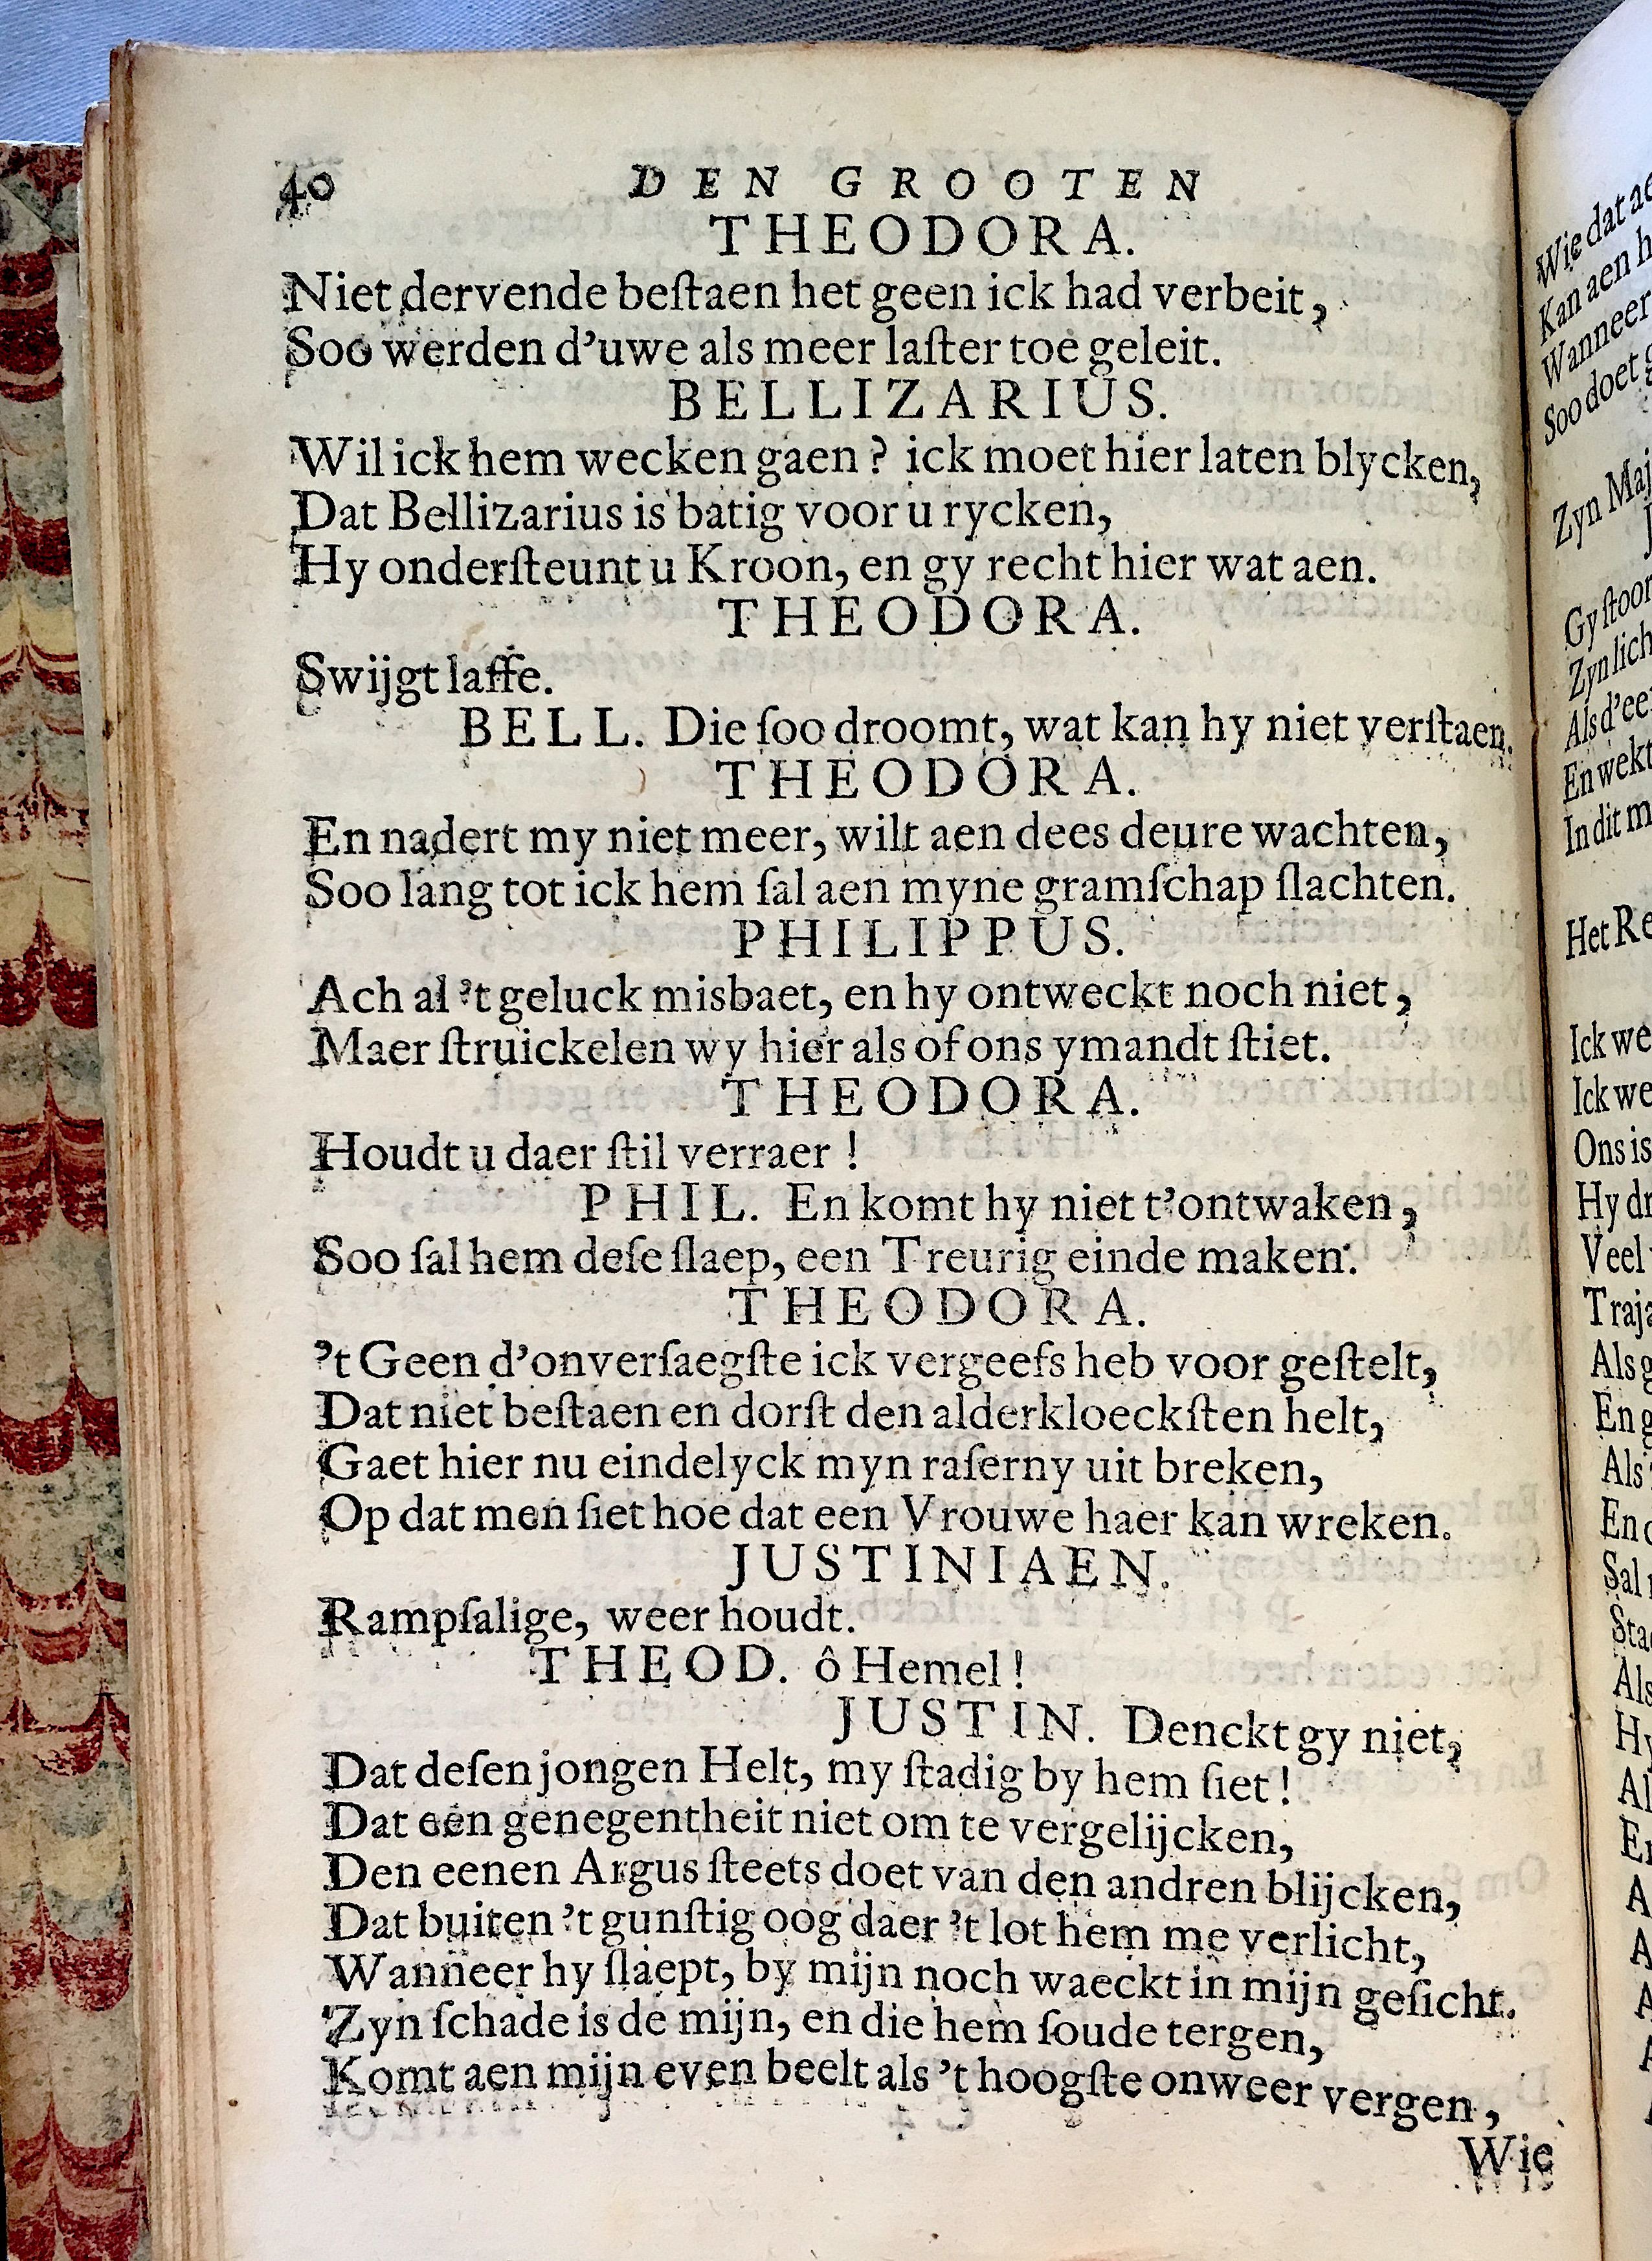 40 DEN GROOTEN
THEODORA.
Niet dervende beſtaen het geen ick had verbeit,
Soo werden d'uwe als meer laſter toe geleit.
BELLIZARIUS.
Wil ick hem wecken gaen? ick moet hier laten blycken,
Dat Bellizarius is batig voor u rycken,
Hy onderſteunt u Kroon, en gy recht hier wat aen.
THEODORA.
Swijgt laffe.
BELL. Die ſoo droomt, wat kan hy niet verſtaen.
THEODORA.
En nadert my niet meer, wilt aen dees deure wachten,
Soo lang tot ick hem ſal aen myne gramſchap ſlachten.
PHILIPPUS.
Ach al 't geluck misbaet, en hy ontweckt noch niet,
Maer ſtruickelen wy hier als of ons ymandt ſtiet.
THEODORA.
Houdt u daer ſtil verraer!
PHIL. En komt hy niet t'ontwaken,
Soo ſal hem deſe ſlaep, een Treurig einde maken.
THEODORA.
't Geen d'onverſaegſte ick vergeefs heb voor geſtelt,
Dat niet beſtaen en dorſt den alderkloeckſten helt,
Gaet hier nu eindelyck myn raſerny uit breken,
Op dat men ſiet hoe dat een Vrouwe haer kan wreken.
JUSTINIAEN.
Rampſalige, weer houdt.
THEOD. ô Hemel!
JUSTIN. Denckt gy niet,
Dat deſen jongen Helt, my ſtadig by hem ſiet!
Dat een genegentheit niet om te vergelijcken,
Den eenen Argus ſteets doet van den andren blijcken,
Dat buiten 't gunſtig oog daer 't lot hem me verlicht,
Wanneer hy ſlaept, by mijn noch waeckt in mijn geſicht.
Zyn ſchade is de mijn, en die hem ſoude tergen,
Komt aen mijn even beelt als 't hoogſte onweer vergen,
Wie
Wie dat
Kan aen
Wanneer
Soo doet
Zyn
Gy
Zyn
Als d'
En wekt
In dit
Het
Ick
Ick
Ons is
Hy
Veel
Als
En
Als
En
Sal
Als